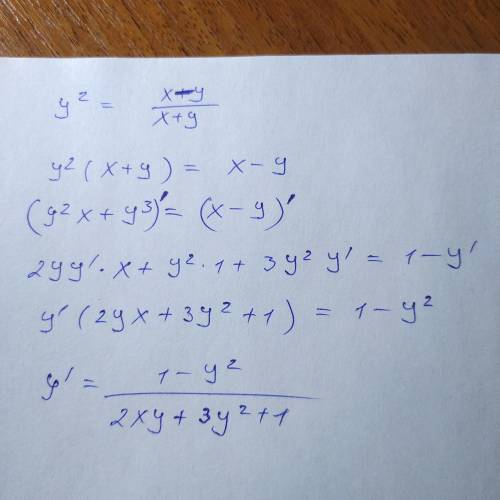 y² = (x-y)/(x+y)
y²(x+y) = x-y
(y²x+y³)' = (x-y)'
2yy'·x + y²·1 + 3y²y' = 1-y'
y'(2yx+3y²+1) = 1-y²
y' = (1-y²)/(2xy+3y²+1)